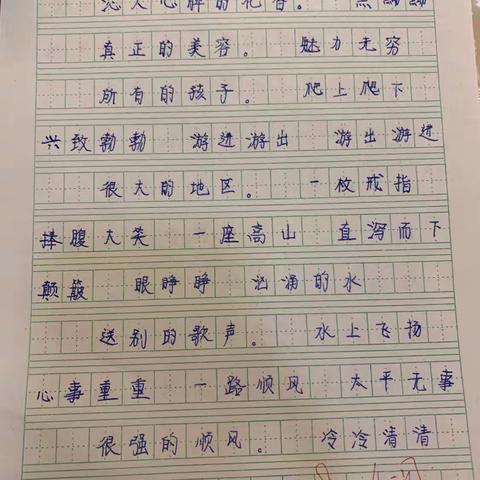 沁人心脾的花香。
真正的美容。 魅力无穷
所有的孩子。 爬上爬下
兴致勃勃 游进游出 游出游进
很大的地区。 一枚戒指
捧腹大笑 一座高山 直泻而下
颠簸 眼睁睁 汹涌的水
送别的歌声。 水上飞扬
心事重重 一路顺风 太平无事
很强的顺风。 冷冷清清